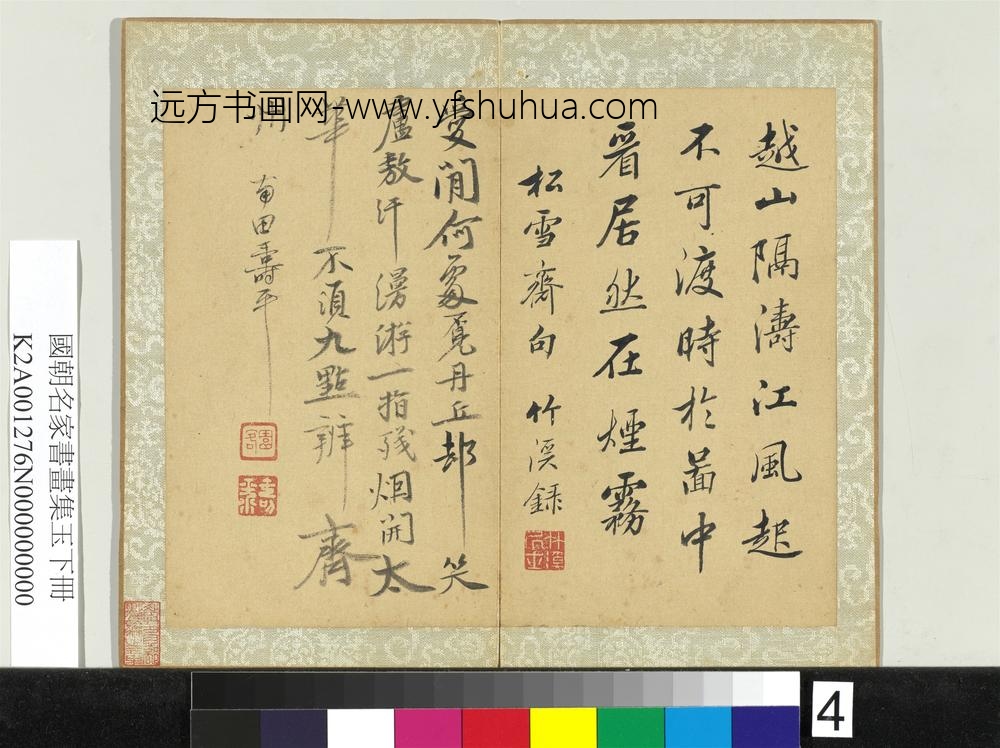 远方书画网-www.yfshuhua.com
越山隔濤江風起
不可渡時於啚中
看居然在煙霧
松雪齋句 竹溪錄
愛閒何處覓丹丘却笑
盧敖汗漫游一指殘烟開太
華不須九點辨齊
州
南田壽平
國朝名家書畫集玉下冊
K2A001276N000000000
4